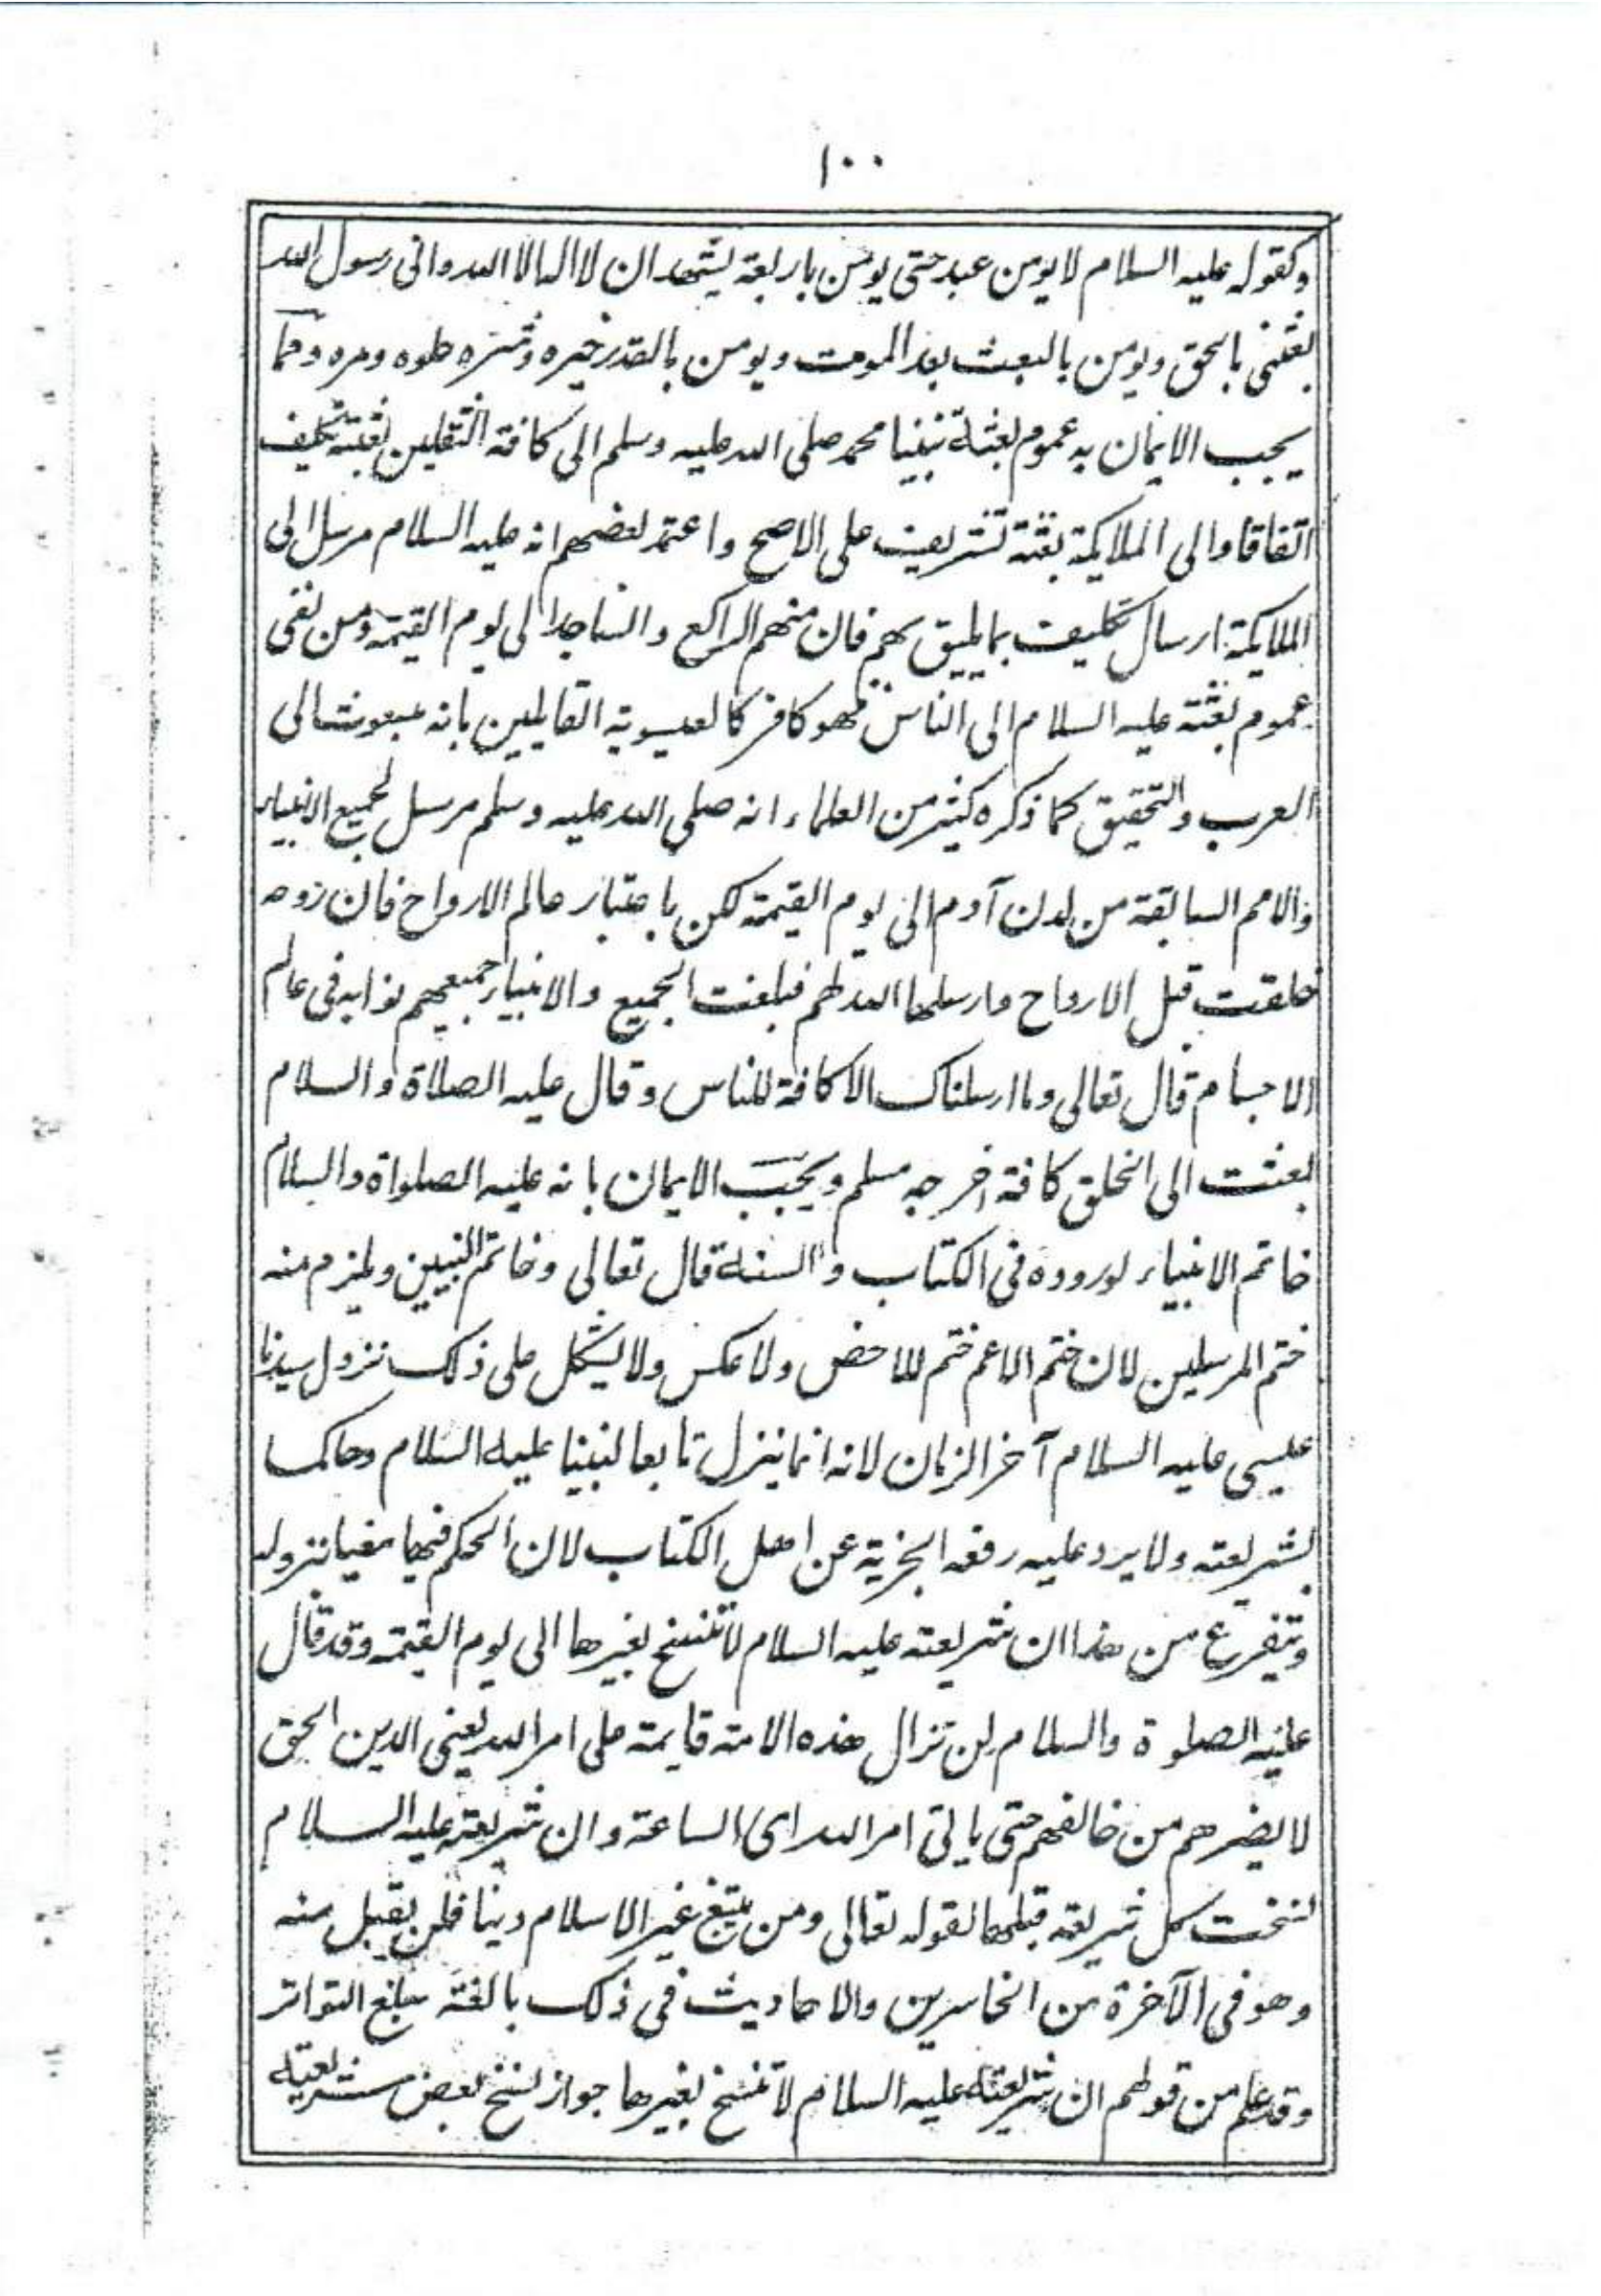 ١٠٠
وكقوله عليه السلام لا يومن عبد حتى يومن باربعة يشهد ان لا اله الا الله واني رسول الله
بعثني بالحق ويومن بالبعث بعد الموت ويومن بالقدر خيره وشره حلوه ومره ومما
يجب الايمان به عموم بعثة نبينا محمد صلى الله عليه وسلم الى كافة الثقلين بعثة تكليف
اتفاقا والى الملايكة بعثة تشريف على الاصح واعتمد بعضهم انه عليه السلام مرسل الى
الملايكة ارسال تكليف بما يليق بهم فان منهم الراكع والساجد الى يوم القيمة ومن نفى
عموم بعثته عليه السلام الى الناس فهو كافر كالعيسوية القايلين بانه مبعوث الى
العرب والتحقيق كما ذكره كثير من العلماء انه صلى الله عليه وسلم مرسل لجميع الانبياء
والامم السابقة من لدن آدم الى يوم القيمة لكن باعتبار عالم الارواح فان روحه
خلقت قبل الارواح وارسلها الله لهم فبلغت الجميع والانبياء جميعهم نوابه في عالم
الاجسام قال تعالى وما ارسلناك الا كافة للناس وقال عليه الصلاة والسلام
بعثت الى الخلق كافة اخرجه مسلم ويجب الايمان بانه عليه الصلواة والسلام
خاتم الانبياء لوروده في الكتاب والسنة قال تعالى وخاتم النبيين ويلزم منه
ختم المرسلين لان ختم الاعم ختم للاخص ولا عكس ولا يشكل على ذلك نزول سيدنا
عيسى عليه السلام آخر الزمان لانه انما ينزل تابعا لنبينا عليه السلام وحاكما
بشريعته ولا يرد عليه رفعه الجزية عن اهل الكتاب لان الحكم فيها مغيا بنزوله
وتيفرع من هذا ان شريعته عليه السلام لا تنسخ بغيرها الى يوم القيمة وقد قال
عليه الصلوة والسلام لن تزال هذه الامة قايمة على امر الله يعني الدين الحق
لا يضرهم من خالفهم حتى ياتي امر الله اى الساعة وان شريعته عليه السلام
نسخت كل شريعة قبلها لقوله تعالى ومن يبتغ غير الاسلام دينا فلن يقبل منه
وهو في الآخرة من الخاسرين والاحاديث في ذلك بالغة مبلغ التواتر
وقد علم من قولهم ان شريعته عليه السلام لا تنسخ بغيرها جواز نسخ بعض شريعته